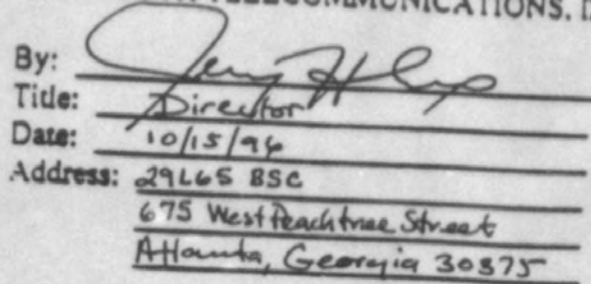 TELECOMMUNICATIONS, I
By: Jerry H
Title: Director
Date: 10/15/96
Address: 29L65 BSC
675 West Peachtree Street
Atlanta, Georgia 30375